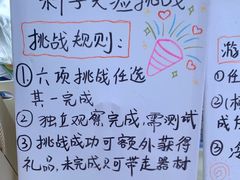 科学实验挑战
挑战规则：
①六项挑战任选
其一完成
②独立观察完成，需测试
③挑战成功可额外获得
礼品，未完成只可带走器材
游
①
②
③